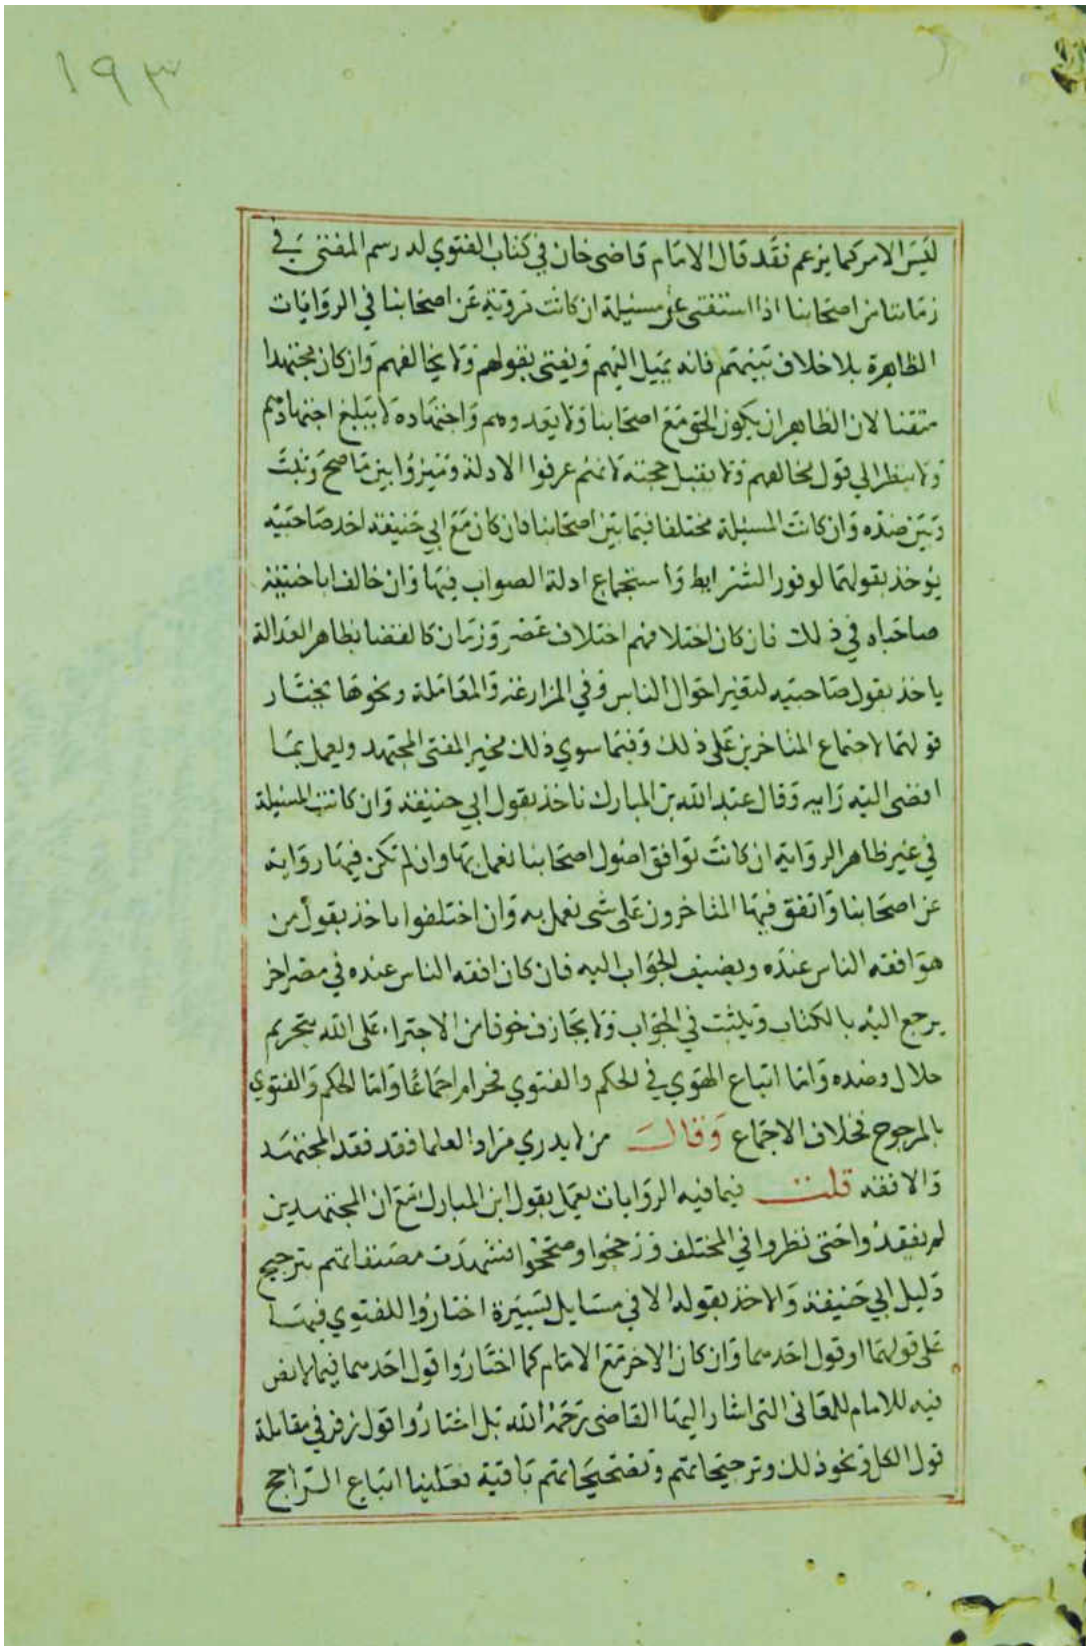 ١٩٣
ليس الامر كما يزعم فقد قال الامام قاضى خان في كتاب الفتوي له رسم المفتى في
زماننا من اصحابنا اذا استفتى عن مسئيلة ان كانت مروية عن اصحابنا في الروايات
الظاهرة بلا خلاف بينهم فانه يميل اليهم ويفتى بقولهم ولا يخالفهم وان كان مجتهدا
متقنا لان الظاهر ان يكون الحق مع اصحابنا ولا يعدوهم واجتهاده لا يبلغ اجتهادهم
ولا ينظر الي قول مخالفهم ولا يقبل حجته لانهم عرفوا الادلة وميزوا بين ما صح وثبت
وبين ضده وان كانت المسئيلة مختلفا فيما بين اصحابنا فان كان مع ابي حنيفة احد صاحبيه
يوخذ بقولهما لوفور الشرايط واستجماع ادلة الصواب فيها وان خالف ابا حنيفة
صاحباه في ذلك فان كان اختلافهم اختلاف عصر وزمان كالقضا بظاهر العدالة
ياخذ بقول صاحبيه لتغير احوال الناس وفي المزارعة والمعاملة ونحوها يختار
قولهما لاجتماع المتاخرين على ذلك وفيما سوي ذلك يخير المفتى المجتهد ويعمل بما
افضى اليه رايه وقال عبد الله بن المبارك ناخذ بقول ابي حنيفة وان كانت المسئيلة
في غير ظاهر الرواية ان كانت توافق اصول اصحابنا نعمل بها وان لم تكن فيها رواية
عن اصحابنا واتفق فيها المتاخرون على شى نعمل به وان اختلفوا ياخذ بقول من
هو افقه الناس عنده ويضيف الجواب اليه فان كان افقه الناس عنده في مصر اخر
يرجع اليه بالكتاب ويثبت في الجواب ولا يجازف خوفا من الاجتراء على الله بتحريم
حلال وضده واما اتباع الهوي في الحكم والفتوي فحرام اجماعا واما الحكم والفتوي
بالمرجوح فخلاف الاجماع وقال من لا يدري مراد العلما فقد فقد المجتهد
والافقه قلت فيما فيه الروايات يعمل بقول ابن المبارك مع ان المجتهدين
لم يفقدوا حتى نظروا في المختلف ورجحوا وصححوا فشهدت مصنفاتهم بترجيح
دليل ابي حنيفة والاخذ بقوله الا في مسايل يسيرة اختاروا الفتوي فيها
على قولهما او قول احدهما وان كان الاخر مع الامام كما اختاروا قول احدهما فيما لا نص
فيه للامام للمعانى التى اشار اليها القاضى رحمه الله بل اختاروا قول زفر في مقابلة
قول الكل ونحو ذلك وترجيحاتهم وتصحيحاتهم باقية فعلينا اتباع الراجح